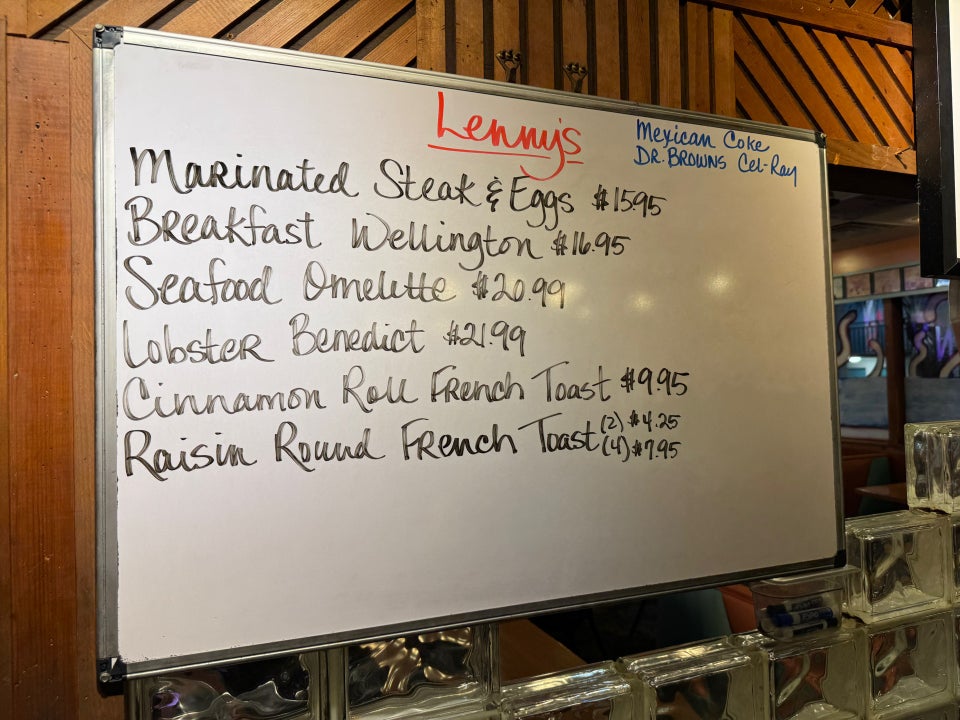 Lenny's
Mexican Coke
DR. BROWNS Cel-Ray
Marinated Steak & Eggs $15.95
Breakfast Wellington $16.95
Seafood Omelette $20.99
Lobster Benedict $21.99
Cinnamon Roll French Toast $9.95
Raisin Round French Toast (2) $4.25
(4) $7.95